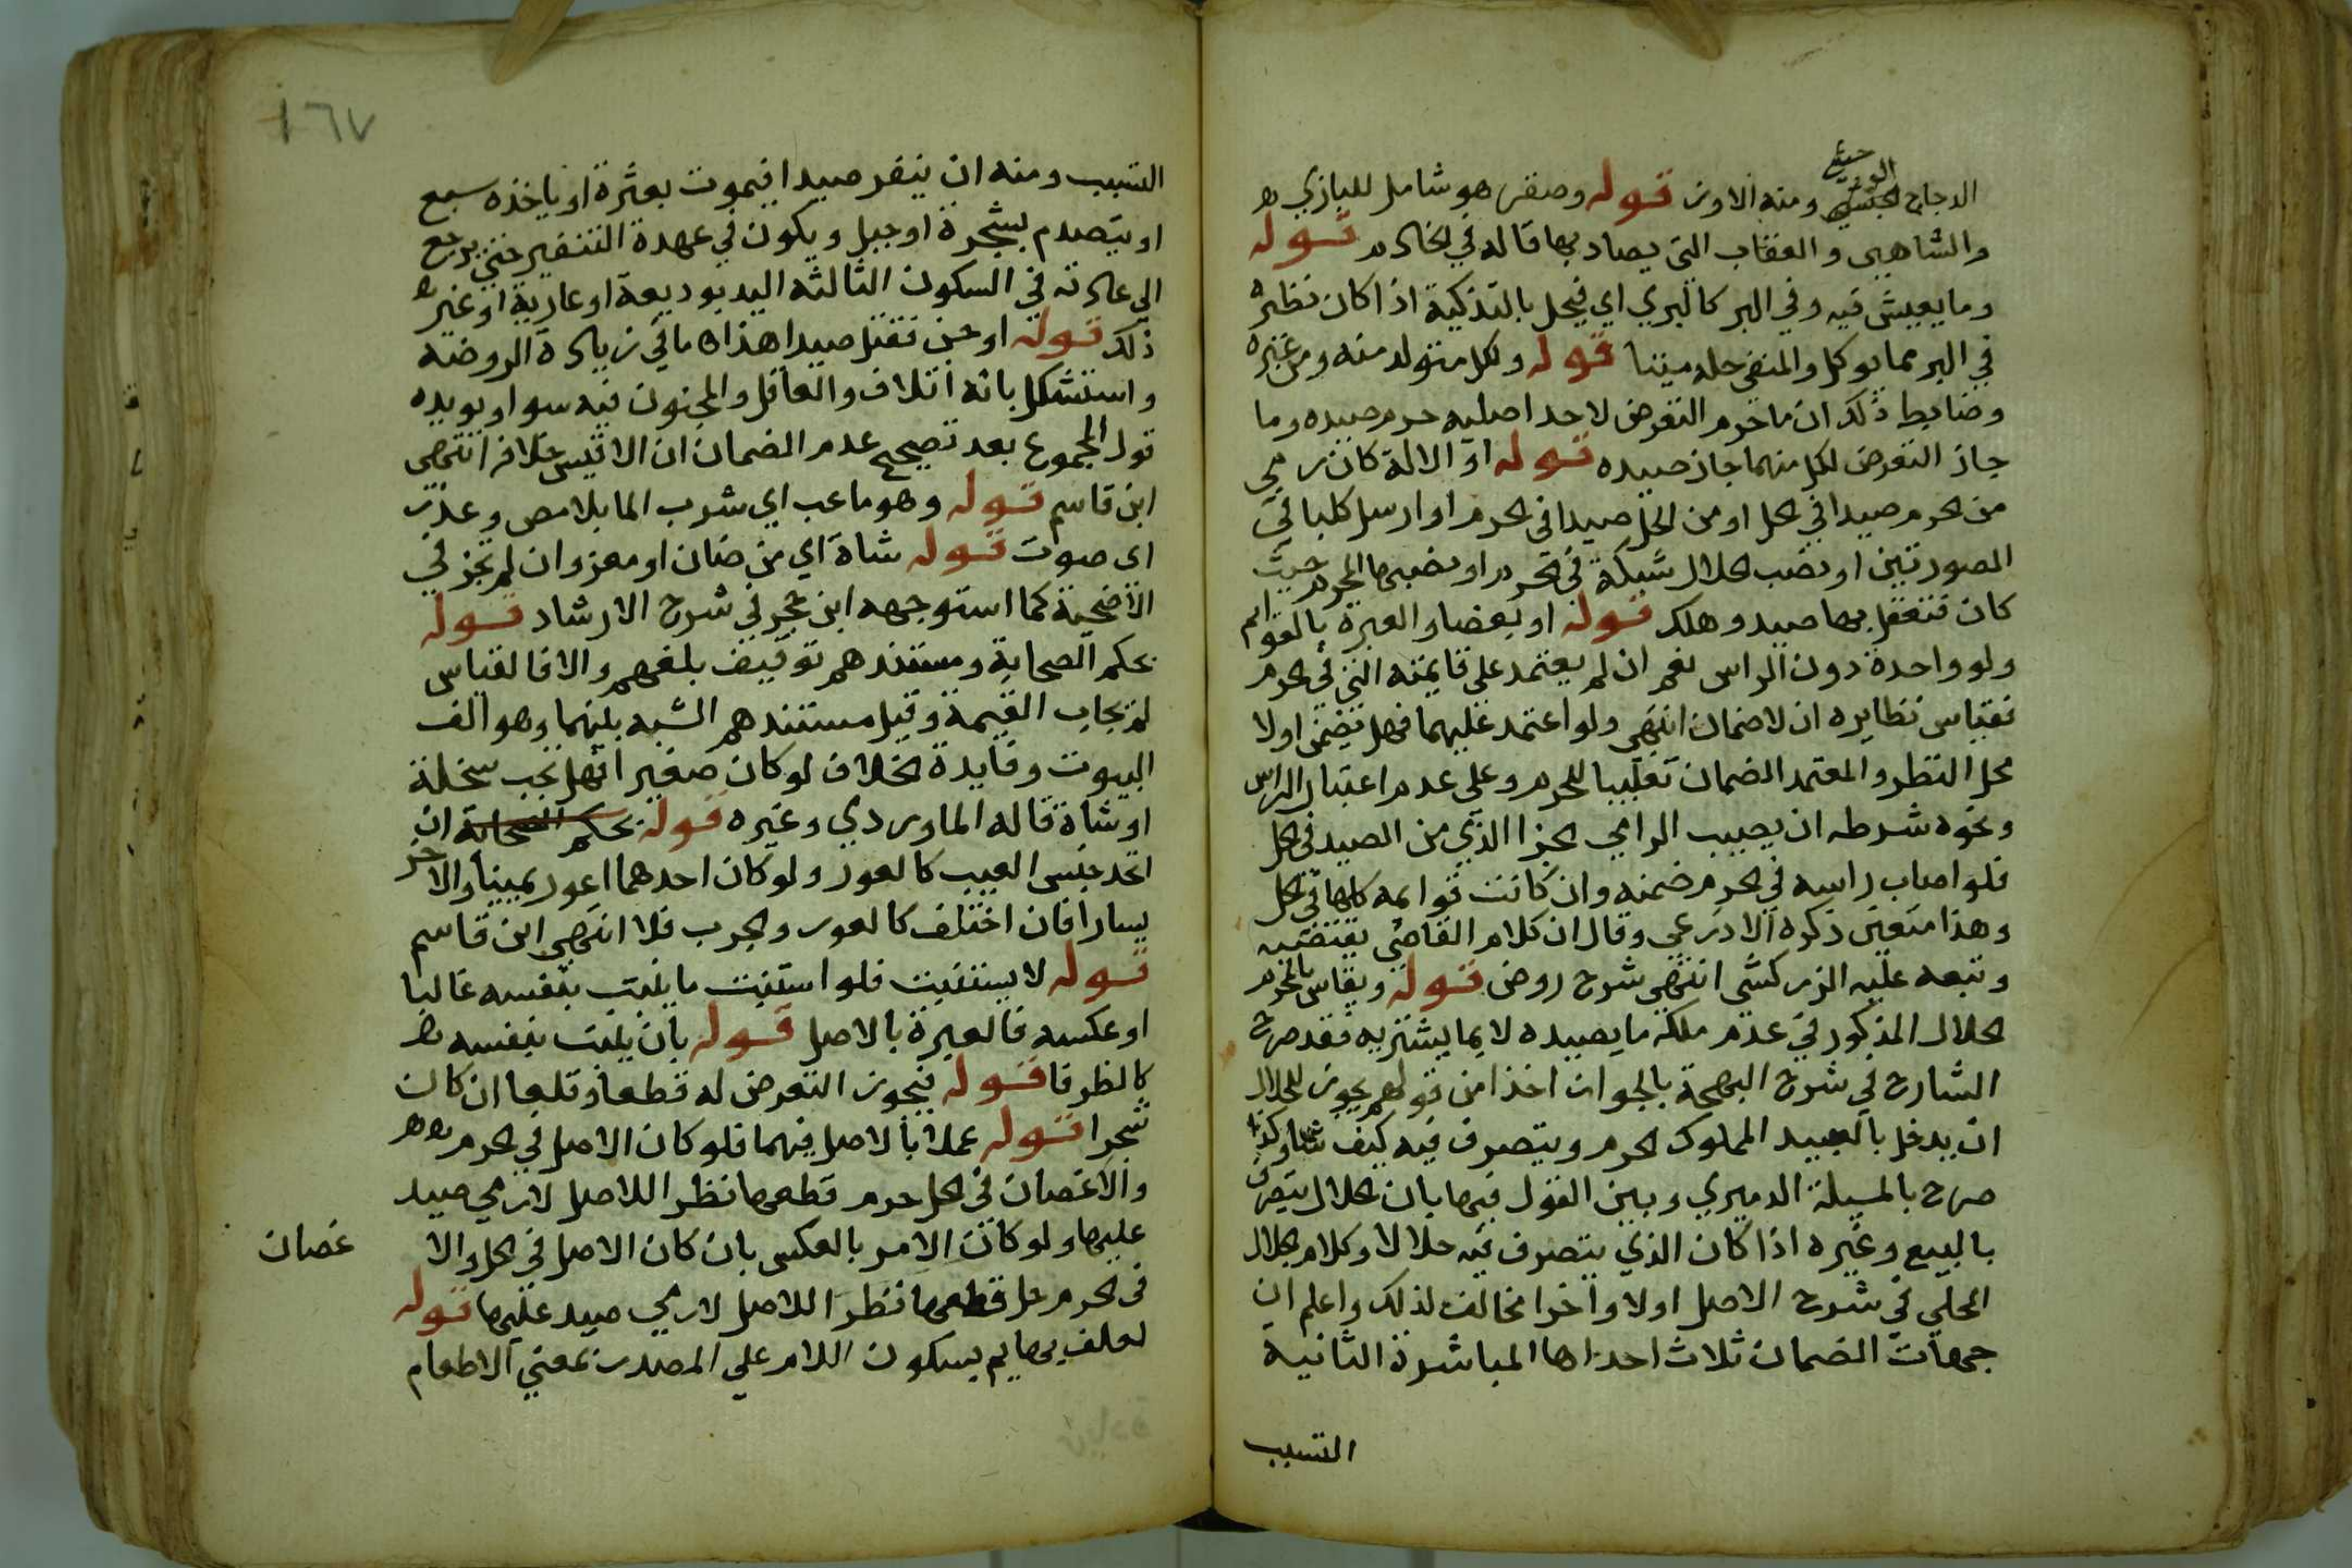 الدجاج الحبشي ومنه الاوز قوله وصقر هو شامل للبازي
الوحشي
والشاهين والعقاب التي يصاد بها قاله في الخادم قوله
وما يعيش فيه وفي البر كالبري اي فيحل بالتذكية اذا كان نظيره
في البر مما يوكل والمنفي حله ميتا قوله ولكل متولد منه ومن غيره
وضابط ذلك ان ما حرم التعرض لاحد اصليه حرم صيده وما
جاز التعرض لكل منهما جاز صيده قوله او الالة كان رمي
من الحرم صيدا في الحل او من الحل صيدا في الحرم او ارسل كلبا في
الصورتين او نصب الحلال شبكة في الحرم او نصبها المحرم حيث
كان فتعقل بها صيد وهلك قوله او بعضا والعبرة بالقوايم
ولو واحدة دون الراس نعم ان لم يعتمد على قايمته التي في الحرم
فقياس نظايره ان لا ضمان انتهى ولو اعتمد عليهما فهل يضمن اولا
محل النظر والمعتمد الضمان تغليبا للحرم وعلى عدم اعتبار الراس
ونحوه شرطه ان يصيب الرامي الجزا الذي من الصيد في الحل
فلو اصاب راسه في الحرم ضمنه وان كانت قوايمه كلها في الحل
وهذا متعين ذكره الاذرعي وقال ان كلام القاضي يقتضيه
وتبعه عليه الزركشي انتهى شرح روض قوله ويقاس بالمحرم
الحلال المذكور في عدم ملكه ما يصيده لا بما يشتريه فقد صرح
الشارح في شرح البهجة بالجواز اخذا من قولهم يجوز للحلال
ان يدخل بالصيد المملوك الحرم ويتصرف فيه كيف شا وكذا
صرح بالمسيلة الدميري وبين القول فيها بان الحلال يتصرف
بالبيع وغيره اذا كان الذي يتصرف فيه حلالا وكلام الجلال
المحلي في شرح الاصل اولا واخرا مخالف لذلك واعلم ان
جهات الضمان ثلاث احداها المباشرة الثانية
التسبب
١٦٧
التسبب ومنه ان ينفر صيدا فيموت بعثرة او ياخذه سبع
او يتصدم بشجرة او جبل ويكون في عهدة التنفير حتى يرجع
الى عادته في السكون الثالثه اليد بوديعة او عارية او غير
ذلك قوله او جن فقتل صيدا هذا ما في زيادة الروضه
واستشكل بانه اتلاف والعاقل والمجنون فيه سوا ويويده
قول المجموع بعد تصحيح عدم الضمان ان الاقيس خلافه انتهى
ابن قاسم قوله وهو ما عب اي شرب الما بلا مص وهدر
اى صوت قوله شاة اي من ضان او معز وان لم تجز في
الاضحية كما استوجهه ابن حجر في شرح الارشاد قوله
بحكم الصحابة ومستندهم توقيف بلغهم والا فالقياس
ايجاب القيمة وقيل مستندهم الشبه بينهما وهو الف
البيوت وفايدة الخلاف لو كان صغيرا فهل تجب سخلة
او شاة قاله الماوردي وغيره قوله بحكم الصحابة ان
اتحد جنس العيب كالعور ولو كان احدهما اعور يمينا والاخر
يسارا فان اختلف كالعور والجرب فلا انتهى ابن قاسم
قوله لا يستنبت فلو استنبت ما ينبت بنفسه غالبا
او عكسه فالعبرة بالاصل قوله بان ينبت بنفسه
كالطرفا قوله فيجوز التعرض له قطعا وقلعا ان كان
شجرا قوله عملا بالاصل فيهما فلو كان الاصل في الحرم
والاغصان في الحل حرم قطعها نظرا للاصل لا رمي صيد
عليها ولو كان الامر بالعكس بان كان الاصل في الحل والا
غصان
فى الحرم حل قطعها نظرا للاصل لا رمي صيد عليها قوله
لعلف بهايم بسكون اللام علي المصدر بمعني الاطعام